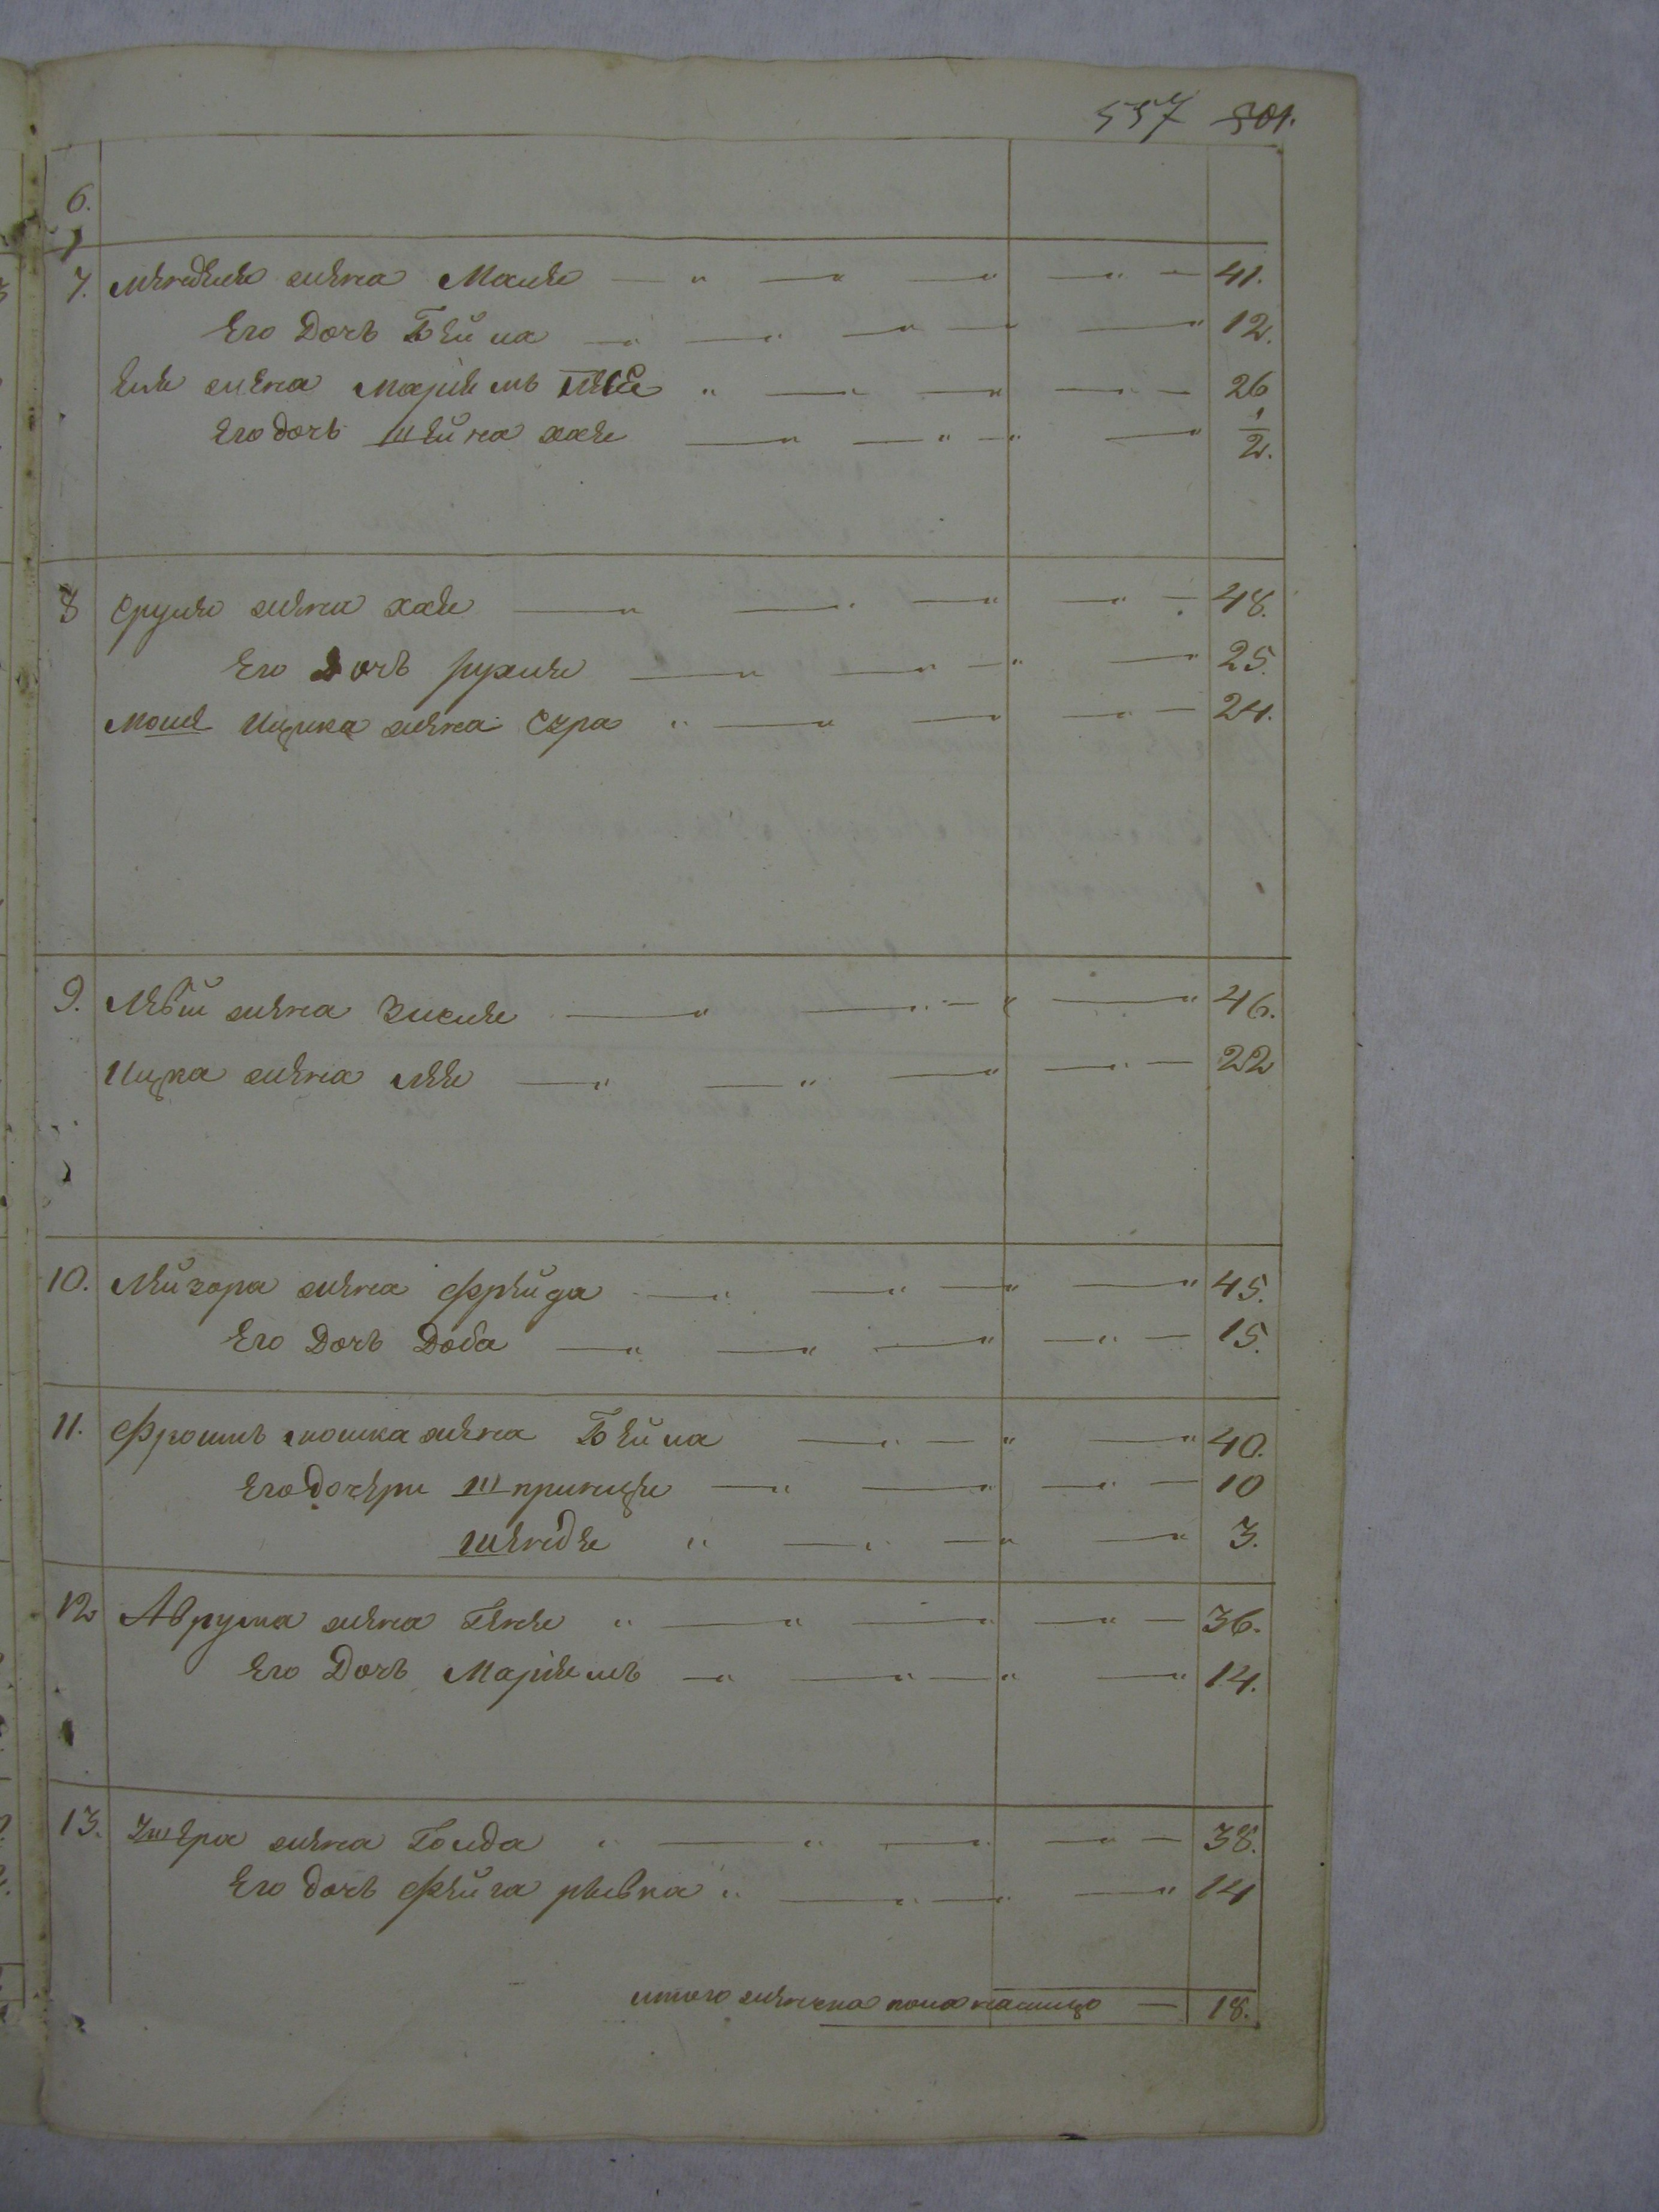 557 501.
6.
7. Менделя жена Малке 41.
Его Дочь Бейла 12.
Еля жена Маріемъ 26
Его дочь Шейна хае 1/2.
8 Срумя жена хае 48.
Его Дочь рухля 25.
Мошя Ицика жена Сура 24.
9. Левы жена Зислe 46.
Ицка жена лее 22
10. Лейзора жена Фрейда 45.
Его Дочь Доба 15.
11. Фроимъ мошка жена Бейла 40.
Его Дочери Шпринце 10
шендe 3.
12 Аврума жена Гене 36.
Его Дочь Маріемъ 14.
13. жена Голда 38.
Его дочь Фейга ривка 14
итого женска пола налицо 18.